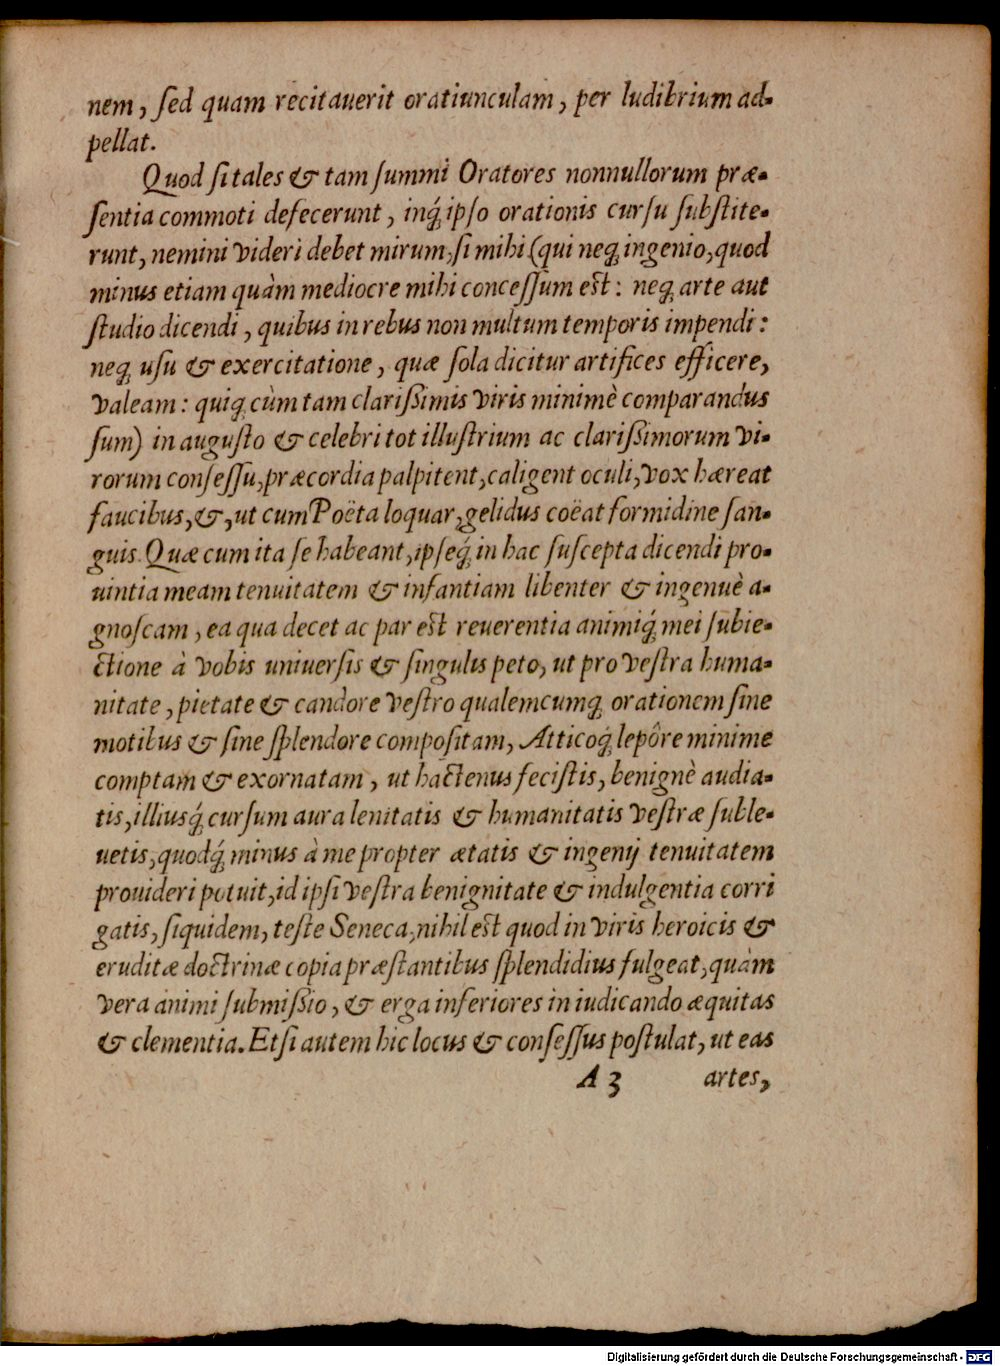 nem, ſed quam recitauerit oratiunculam, per ludibrium ad-
pellat.
Quod ſi tales & tam ſummi Oratores nonnullorum præ-
ſentia commoti defecerunt, inq́; ipſo orationis curſu ſubſtite-
runt, nemini videri debet mirum, ſi mihi (qui neq; ingenio, quod
minus etiam quàm mediocre mihi conceſſum eſt: neq; arte aut
ſtudio dicendi, quibus in rebus non multum temporis impendi:
neq; uſu & exercitatione, quæ ſola dicitur artifices efficere,
valeam: quiq; cùm tam clarißimis viris minimè comparandus
ſum) in auguſto & celebri tot illuſtrium ac clarißimorum vi-
rorum conſeſſu, præcordia palpitent, caligent oculi, vox hæreat
faucibus, &, ut cum Poëta loquar, gelidus coëat formidine ſan-
guis. Quæ cum ita ſe habeant, ipſeq́; in hac ſuſcepta dicendi pro-
uintia meam tenuitatem & infantiam libenter & ingenuè a-
gnoſcam, ea qua decet ac par eſt reuerentia animiq́; mei ſubie-
ctione à vobis uniuerſis & ſingulis peto, ut pro veſtra huma-
nitate, pietate & candore veſtro qualemcumq; orationem ſine
motibus & ſine ſplendore compoſitam, Atticoq́; lepôre minime
comptam & exornatam, ut hactenus feciſtis, benignè audia-
tis, illiusq́; curſum aura lenitatis & humanitatis veſtræ ſuble-
uetis, quodq́; minus à me propter ætatis & ingenij tenuitatem
prouideri potuit, id ipſi veſtra benignitate & indulgentia corri
gatis, ſiquidem, teſte Seneca, nihil eſt quod in viris heroicis &
eruditæ doctrinæ copia præſtantibus ſplendidius fulgeat, quàm
vera animi ſubmißio, & erga inferiores in iudicando æquitas
& clementia. Etſi autem hic locus & conſeſſus poſtulat, ut eas
A 3 artes,
Digitalisierung gefördert durch die Deutsche Forschungsgemeinschaft - DFG